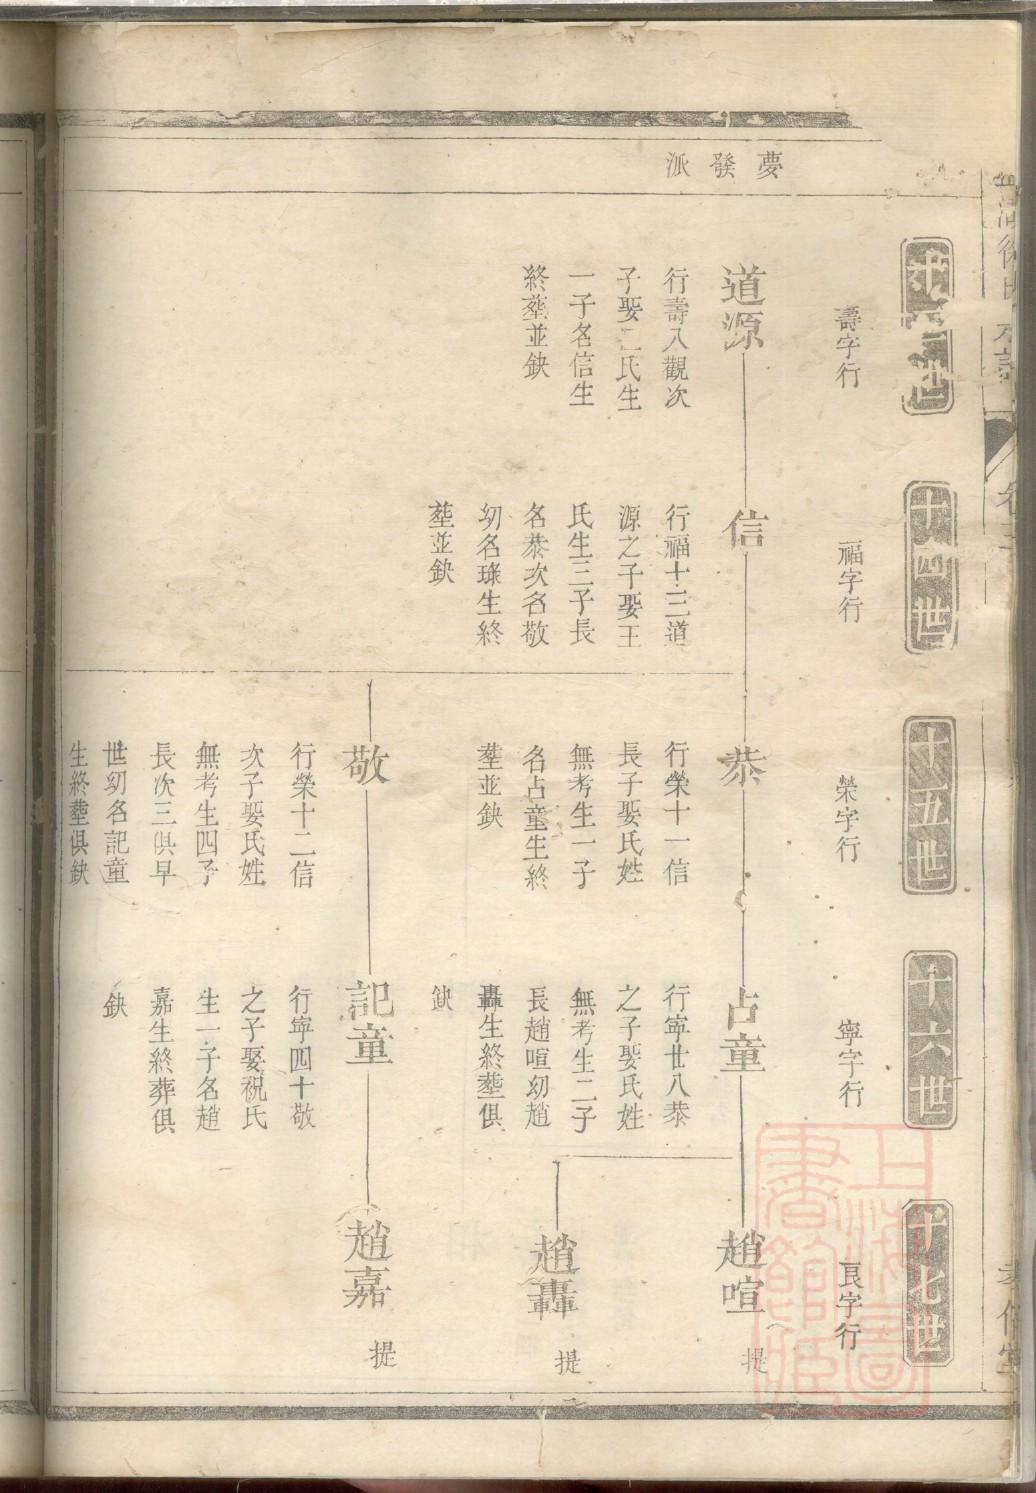 夢發派
十三世
壽字行
道源
行壽入觀次
子娶二氏生
一子名信生
終塟並缺
十四世
福字行
信
行福十三道
源之子娶王
氏生三子長
名恭次名敬
幼名琭生終
塟並缺
十五世
榮字行
恭
行榮十一信
長子娶氏姓
無考生一子
名占童生終
塟並缺
敬
行榮十二信
次子娶氏姓
無考生四子
長次三俱早
世幼名記童
生終塟俱缺
十六世
寧字行
占童
行寧廿八恭
之子娶氏姓
無考生二子
長趙喧幼趙
轟生終塟俱
缺
記童
行寧四十敬
之子娶祝氏
生一子名趙
嘉生終葬俱
缺
十七世
良字行
趙喧
提
趙轟
提
趙嘉
提
上海圖書館藏